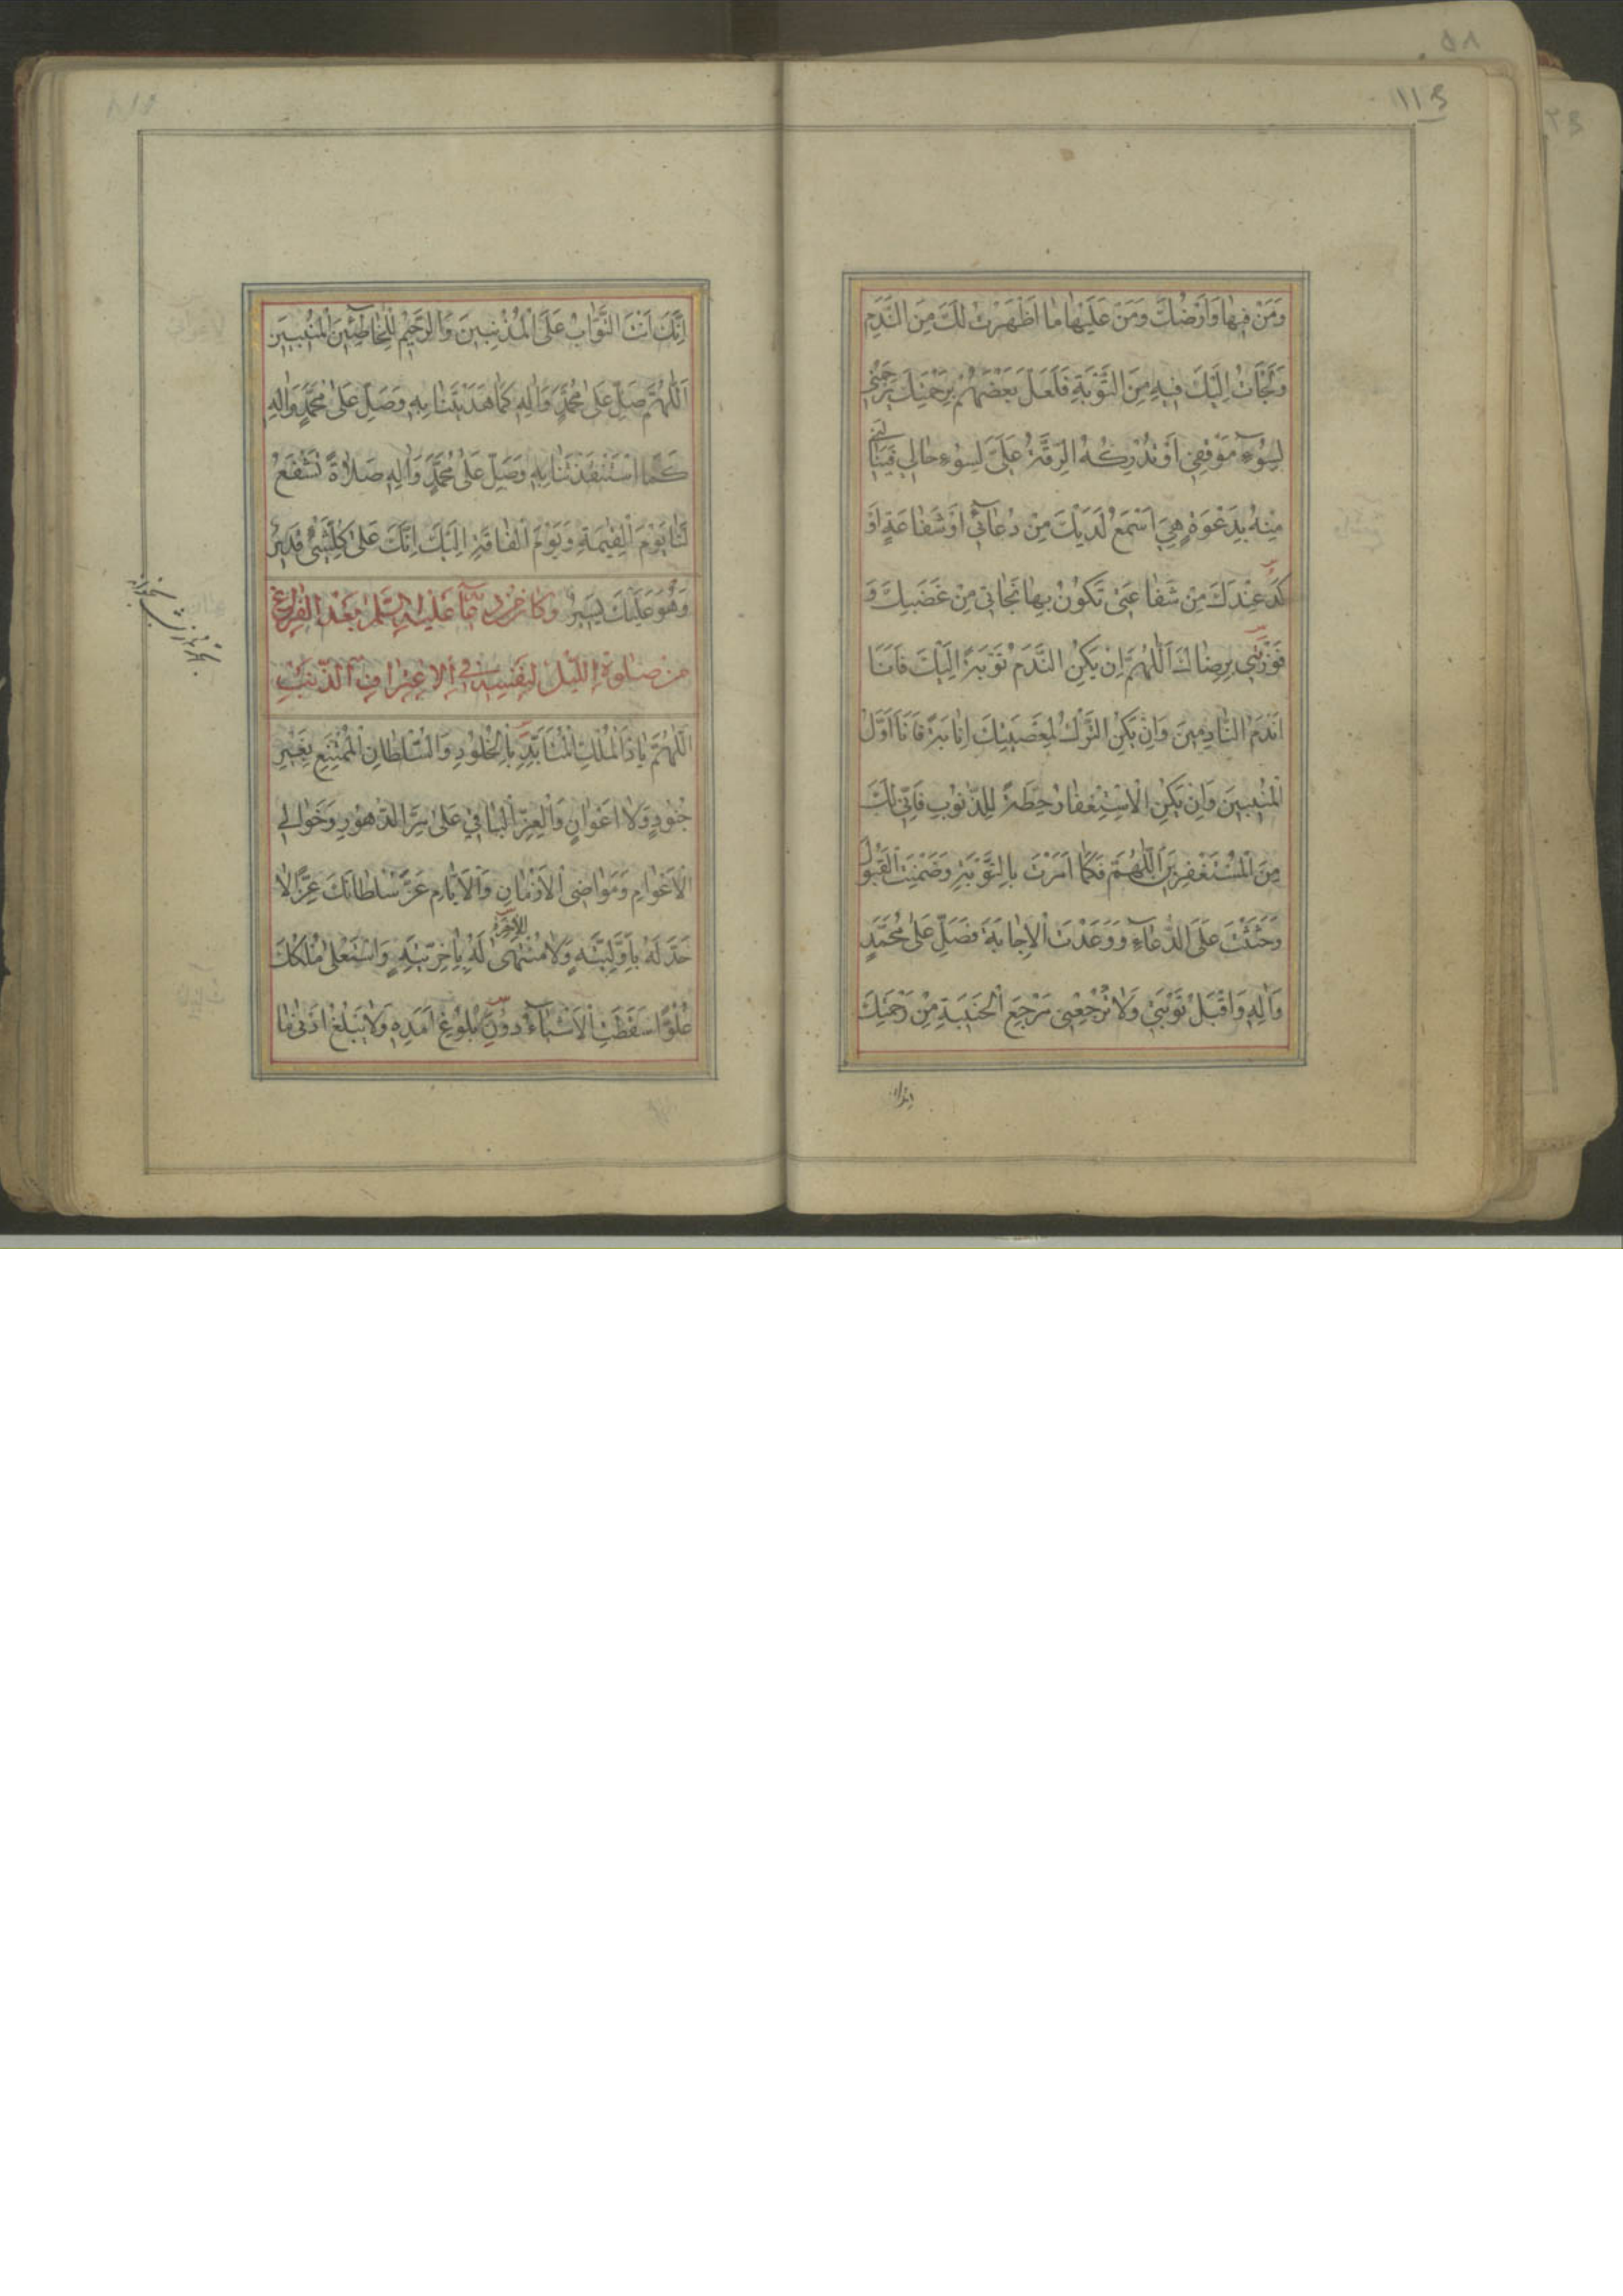 ۱۱۶
وَمَنْ فِيهَا وَاَرْضُكَ وَمَنْ عَلَيْهَا مَا اَظْهَرْتُ لَكَ مِنَ النَّدَمِ
وَلَجَأْتُ اِلَيْكَ فِيهِ مِنَ التَّوْبَةِ فَلَعَلَّ بَعْضَهُمْ بِرَحْمَتِكَ يَرْحَمُنِي
لِسُوۤءِ مَوْقِفِي اَوْ تُدْرِكُهُ الرِّقَّةُ عَلَيَّ لِسُوۤءِ حَالِي فَيَنَالَنِي
مِنْهُ بِدَعْوَةٍ هِيَ اَسْمَعُ لَدَيْكَ مِنْ دُعَاۤئِي اَوْ شَفَاعَةٍ اَوْ
كَدُ عِنْدَكَ مِنْ شَفَاعَتِي تَكُونُ بِهَا نَجَاتِي مِنْ غَضَبِكَ وَ
فَوْزَتِي بِرِضَاكَ اَللّٰهُمَّ اِنْ يَكُنِ النَّدَمُ تَوْبَةً اِلَيْكَ فَاَنَا
اَنْدَمُ النَّادِمِينَ وَاِنْ يَكُنِ التَّرْكُ لِمَعْصِيَتِكَ اِنَابَةً فَاَنَا اَوَّلُ
الْمُنِيبِينَ وَاِنْ يَكُنِ الْاِسْتِغْفَارُ حِطَّةً لِلذُّنُوبِ فَاِنِّي لَكَ
مِنَ الْمُسْتَغْفِرِينَ اَللّٰهُمَّ فَكَمَا اَمَرْتَ بِالتَّوْبَةِ وَضَمِنْتَ الْقَبُولَ
وَحَثَثْتَ عَلَى الدُّعَاۤءِ وَوَعَدْتَ الْاِجَابَةَ فَصَلِّ عَلٰى مُحَمَّدٍ
وَاٰلِهِ وَاقْبَلْ تَوْبَتِي وَلَا تُرْجِعْنِي مَرْجِعَ الْخَيْبَةِ مِنْ رَحْمَتِكَ
انك
اِنَّكَ اَنْتَ التَّوَّابُ عَلَى الْمُذْنِبِينَ وَالرَّحِيمُ لِلْخَاطِئِينَ الْمُنِيبِينَ
اَللّٰهُمَّ صَلِّ عَلٰى مُحَمَّدٍ وَاٰلِهِ كَمَا هَدَيْتَنَا بِهِ وَصَلِّ عَلٰى مُحَمَّدٍ وَاٰلِهِ
كَمَا اسْتَنْقَذْتَنَا بِهِ وَصَلِّ عَلٰى مُحَمَّدٍ وَاٰلِهِ صَلَاةً تَشْفَعُ
لَنَا يَوْمَ الْقِيٰمَةِ وَيَوْمَ الْفَاقَةِ اِلَيْكَ اِنَّكَ عَلٰى كُلِّ شَيْءٍ قَدِيرٌ
وَهُوَ عَلَيْكَ يَسِيرٌ وَكَانَ مِنْ دُعَائِهِ عَلَيْهِ السَّلَامُ بَعْدَ الْفَرَاغِ
مِنْ صَلٰوةِ اللَّيْلِ لِنَفْسِهِ فِي الْاِعْتِرَافِ بِالذَّنْبِ
اَللّٰهُمَّ يَا ذَا الْمُلْكِ الْمُتَاَبِّدِ بِالْخُلُودِ وَالسُّلْطَانِ الْمُمْتَنِعِ بِغَيْرِ
جُنُودٍ وَلَا اَعْوَانٍ وَالْعِزِّ الْبَاقِي عَلٰى مَرِّ الدُّهُورِ وَخَوَالِي
الْاَعْوَامِ وَمَوَاضِي الْاَزْمَانِ وَالْاَيَّامِ عَزَّ سُلْطَانُكَ عِزًّا لَا
حَدَّ لَهُ بِاَوَّلِيَّةٍ وَلَا مُنْتَهٰى لَهُ بِاٰخِرِيَّةٍ وَاسْتَعْلٰى مُلْكُكَ
عُلُوًّا سَقَطَتِ الْاَشْيَاۤءُ دُونَ بُلُوغِ اَمَدِهِ وَلَا يَبْلُغُ اَدْنٰى مَا